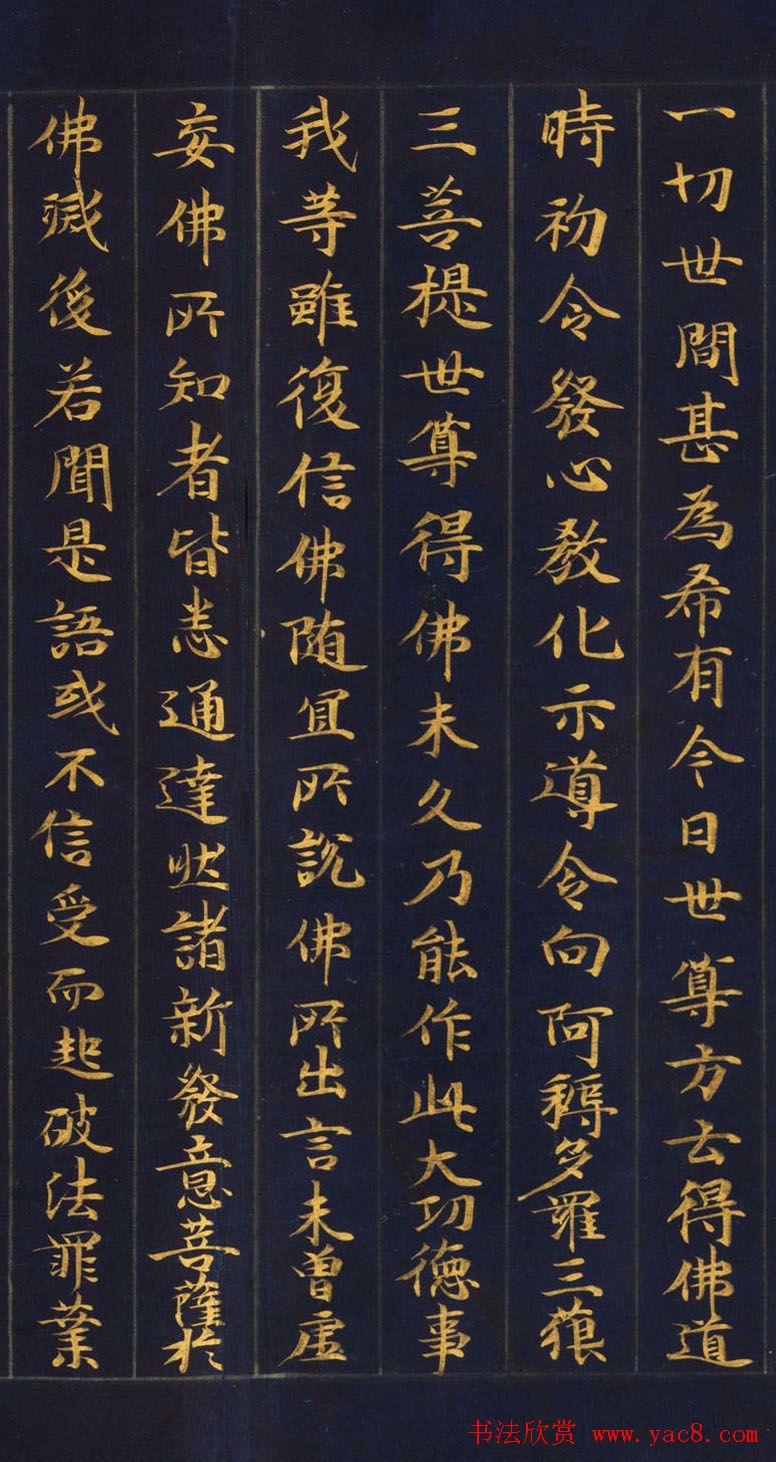 一切世間甚為希有今日世尊方去得佛道
時初令發心教化示導令向阿耨多羅三藐
三菩提世尊得佛未久乃能作此大功德事
我等雖復信佛随宜所說佛所出言未曽虛
妄佛所知者皆悉通達然諸新發意菩薩於
佛滅後若聞是語或不信受而起破法罪業
书法欣赏 www.yac8.com